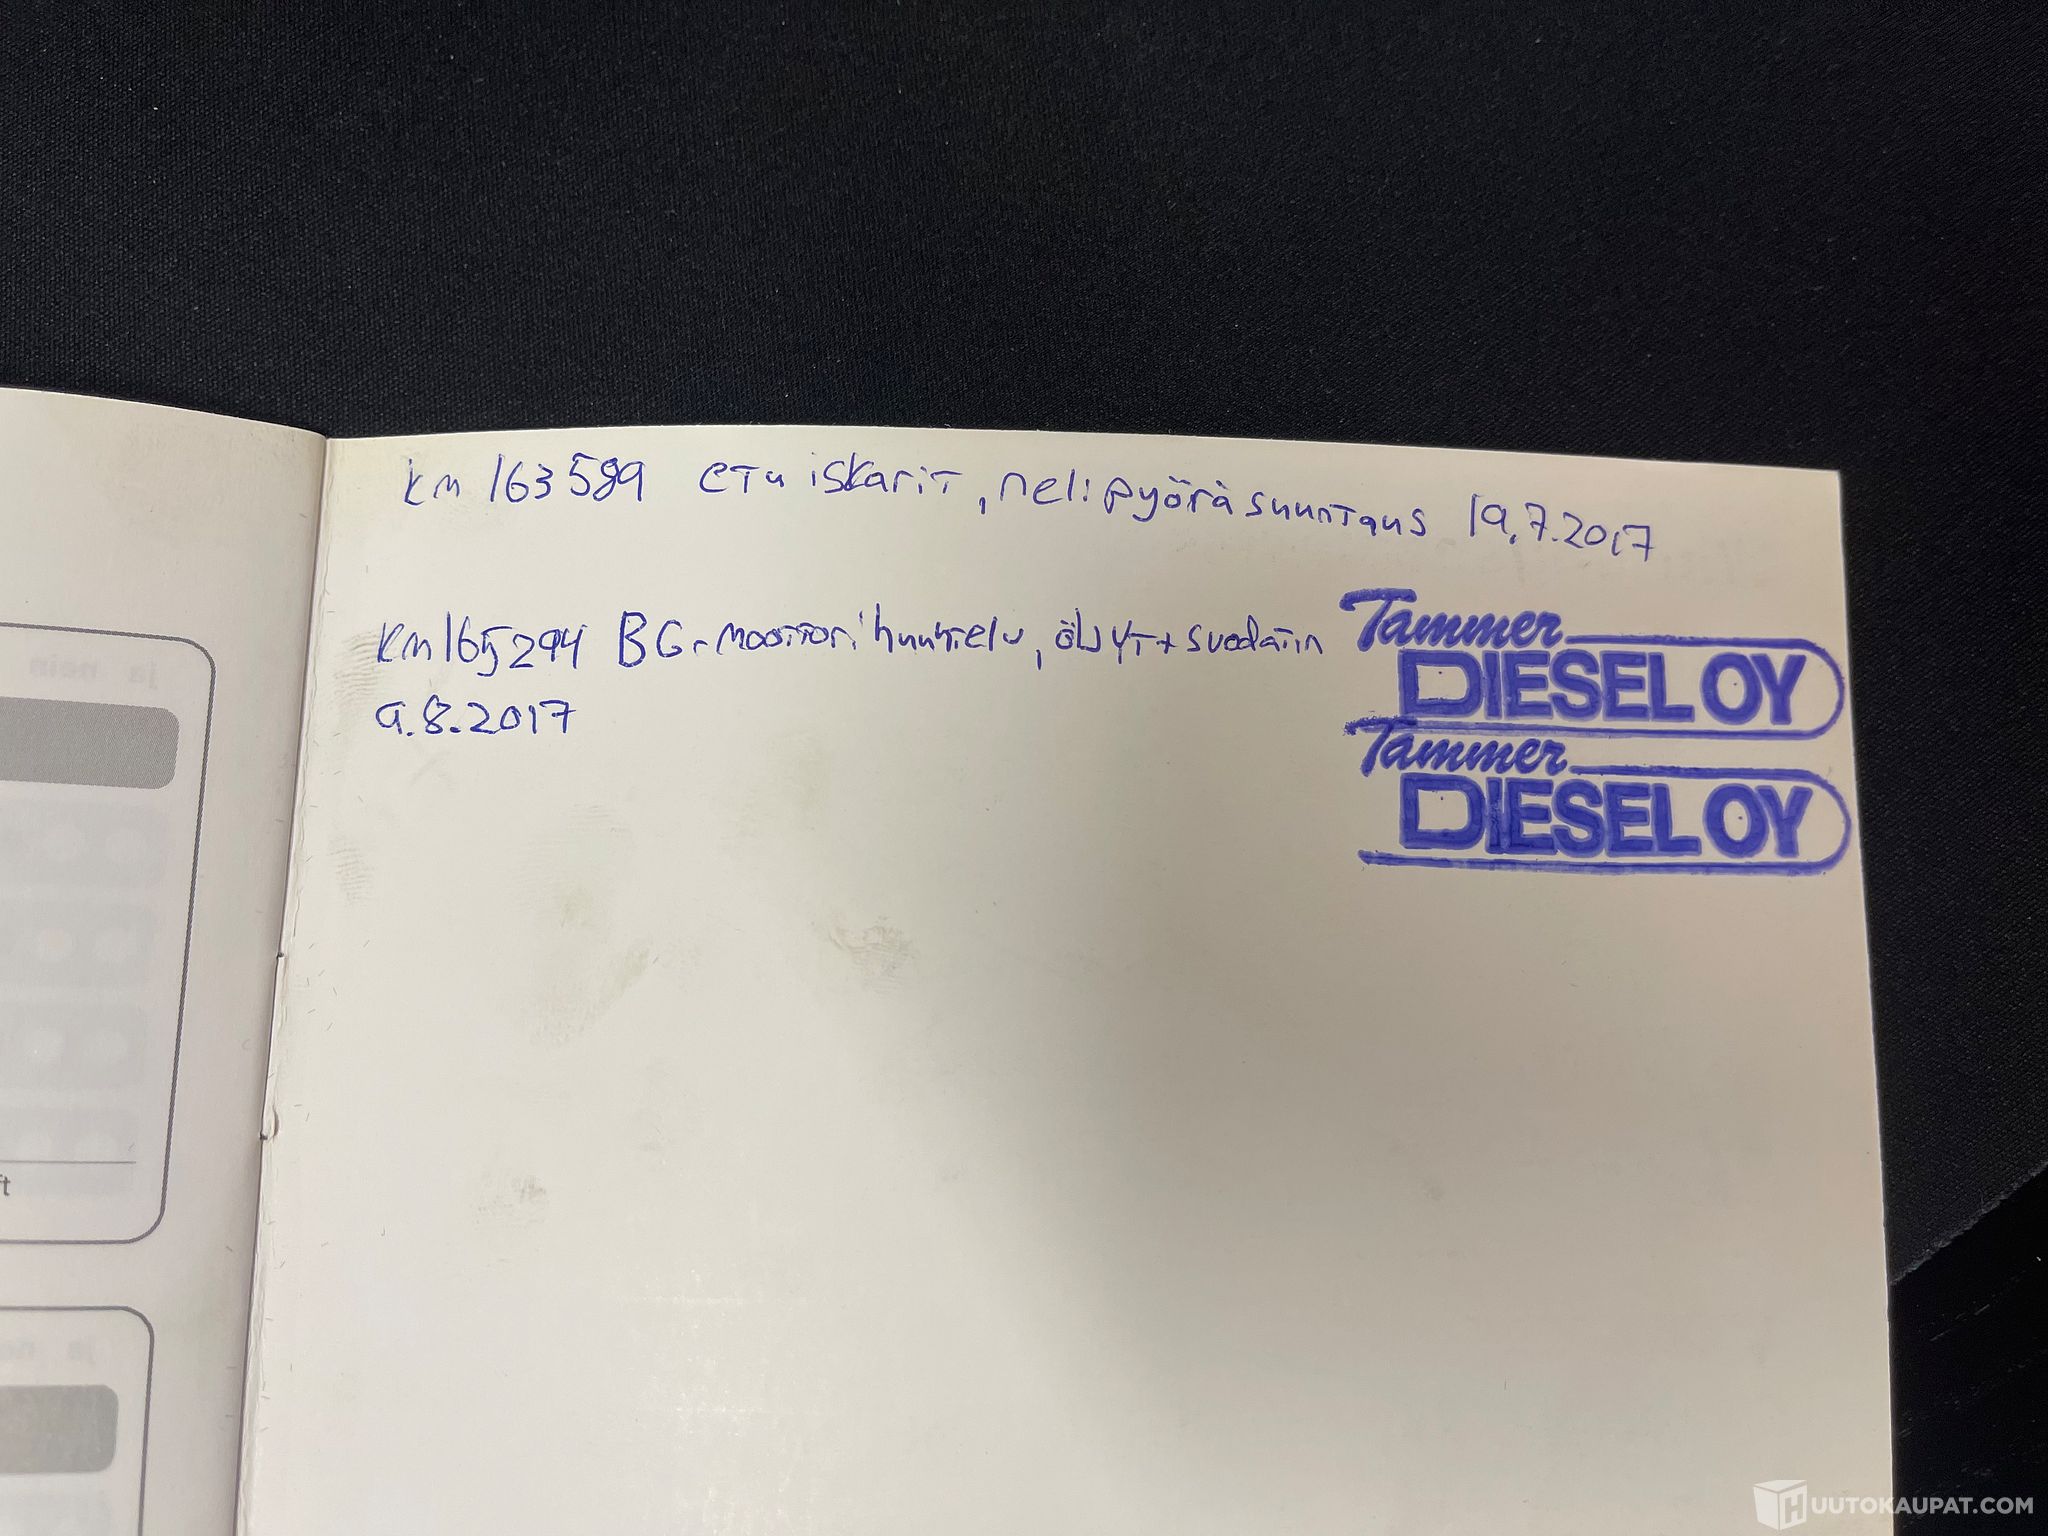 km 163589 etu iskarit, nelipyöräsuuntaus 19.7.2017
km 165294 BG-moottorihuuhtelu, öljyt + suodatin
9.8.2017
Tammer
DIESEL OY
Tammer
DIESEL OY
ja nein
ft
ja ne
HUUTOKAUPAT.COM